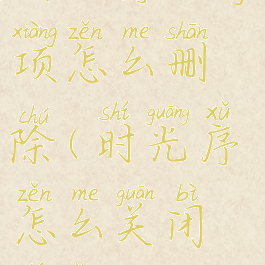 xiàng zěn me shān
项怎么删
chú shí guāng xù
除(时光序
zěn me guān bì
怎么关闭